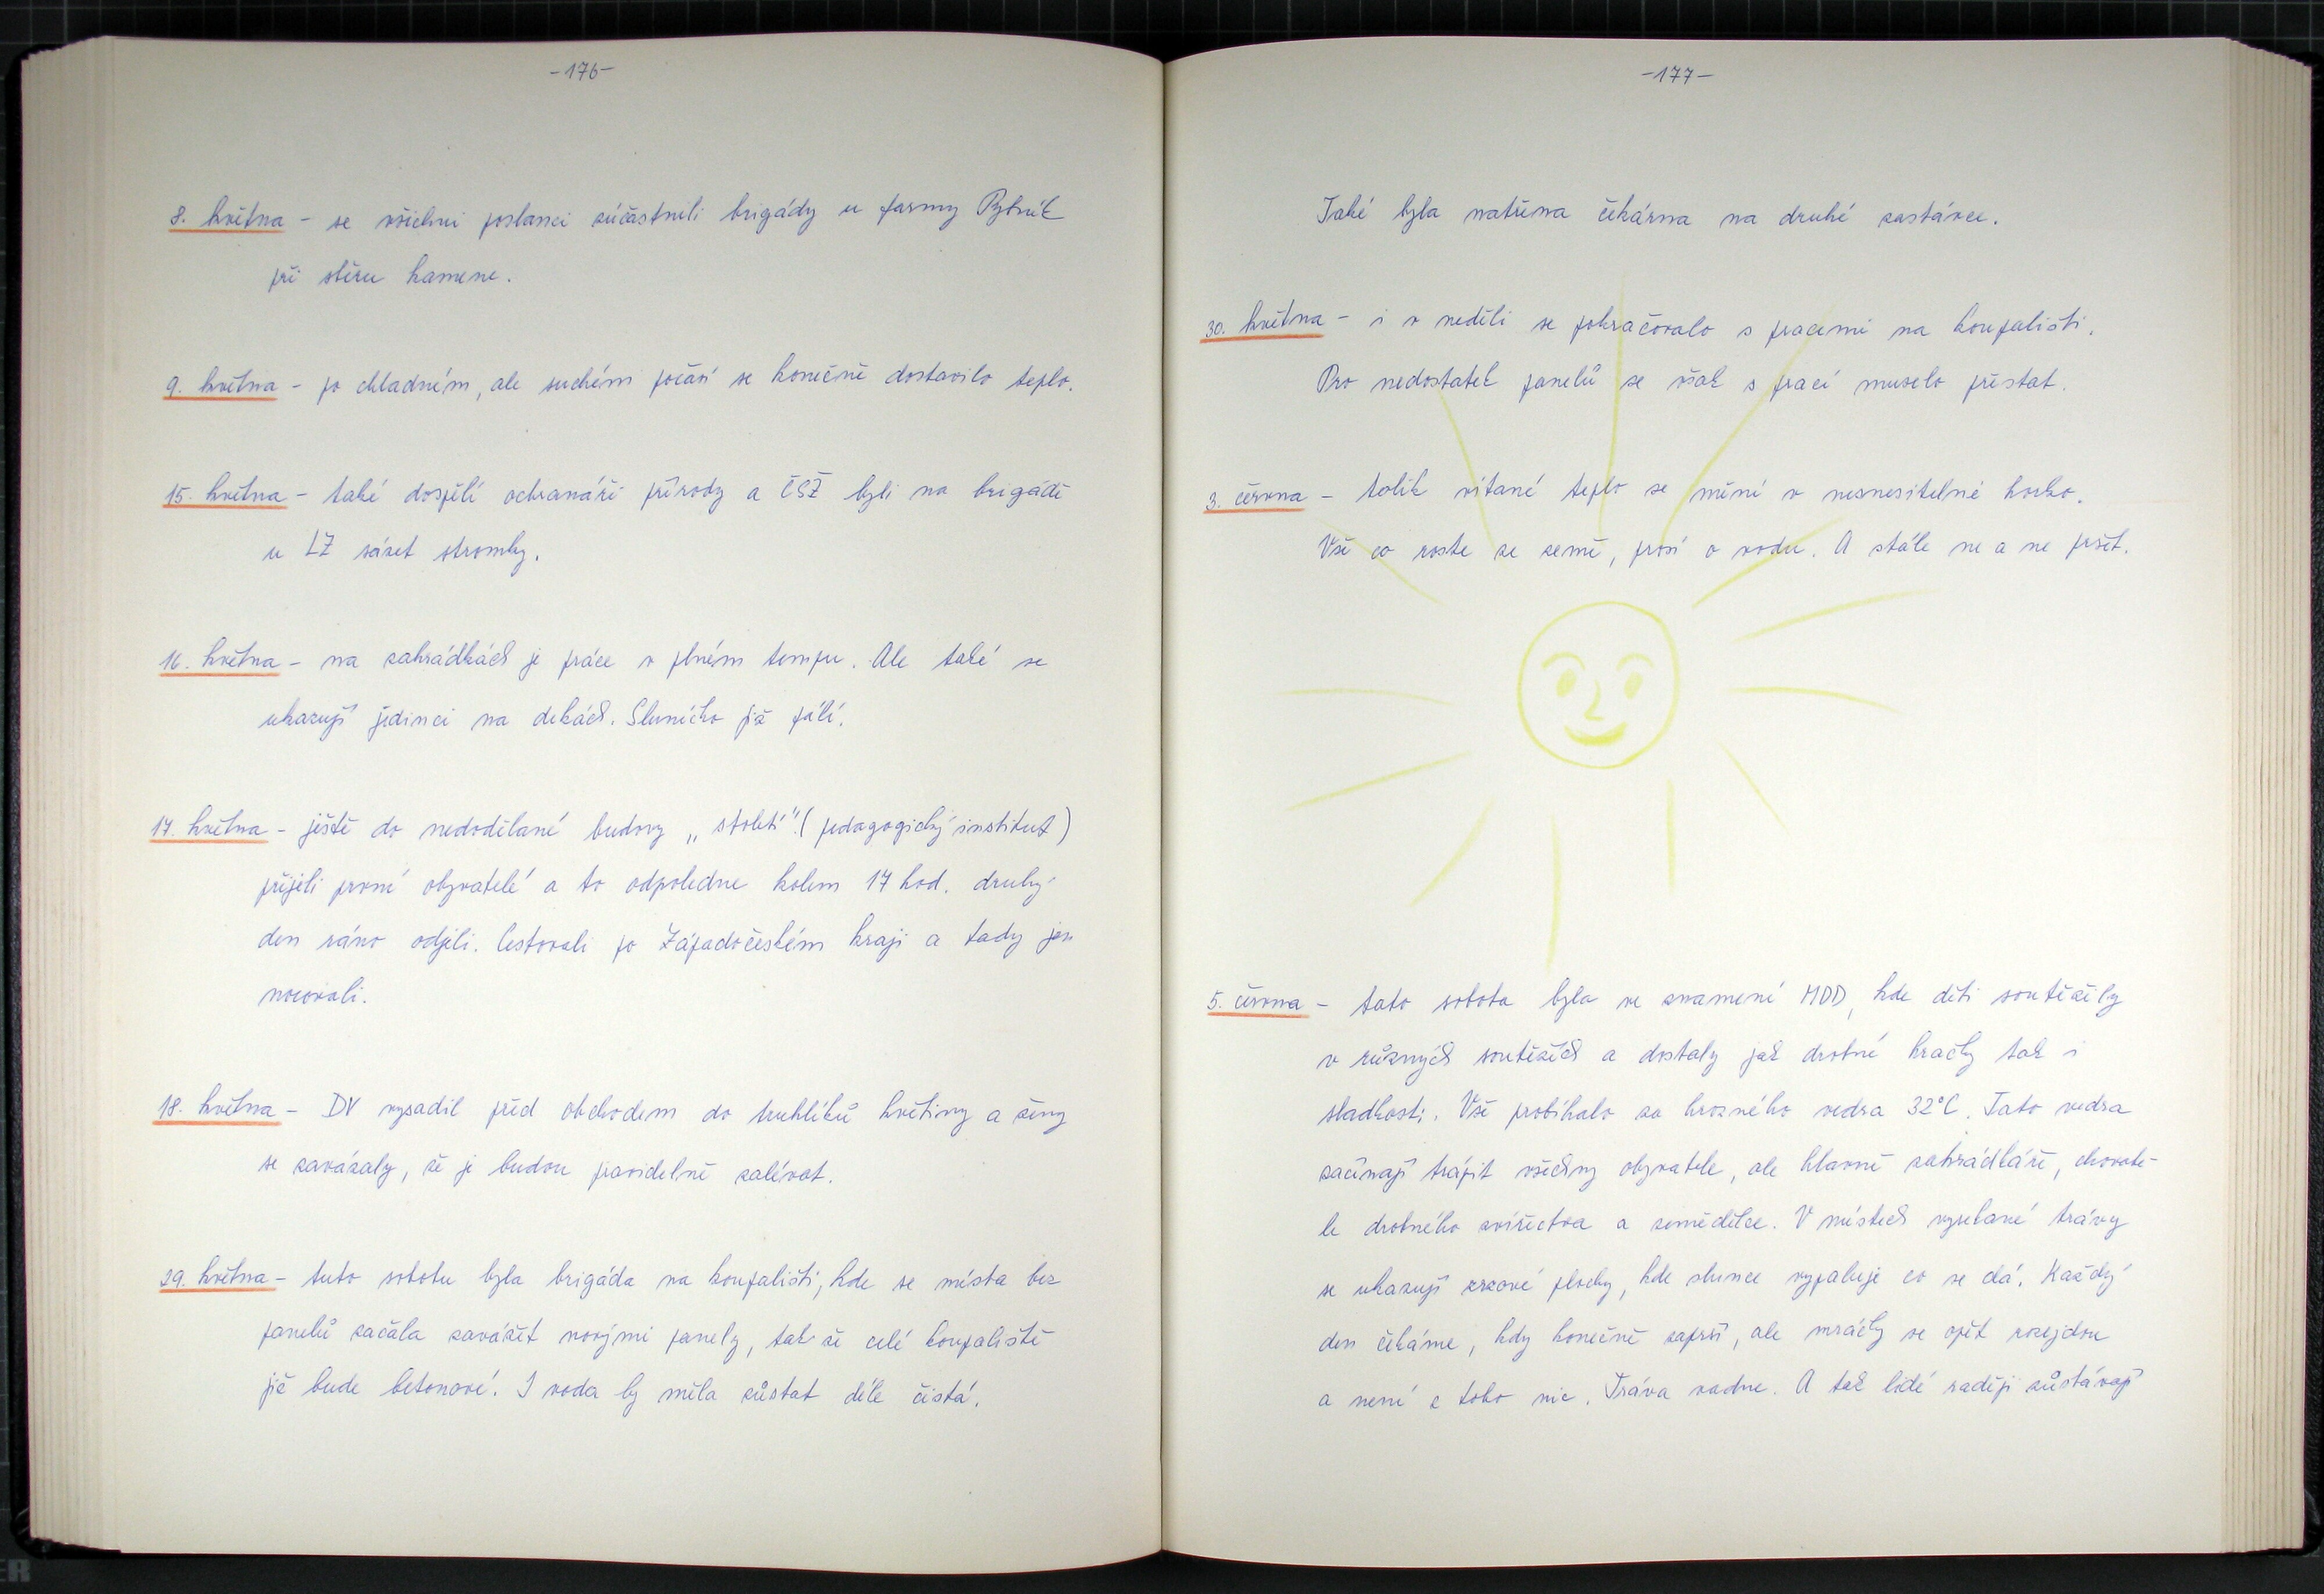 -176-
8. května - se všichni poslanci zúčastnili brigády u farmy Rybník
při sběru kamene.
9. května - po chladném, ale suchém počasí se konečně dostavilo teplo.
15. května - také dospělí ochranáři přírody a ČSŽ byli na brigádě
u LZ sázet stromky.
16. května - na zahrádkách je práce v plném tempu. Ale také se
ukazují jedinci na dekách. Sluníčko již pálí.
17. května - ještě do nedodělané budovy „století" (pedagogický institut)
přijeli první obyvatelé a to odpoledne kolem 17 hod. druhý
den ráno odjeli. Cestovali po Západočeském kraji a tady jen
nocovali.
18. května - DV vysadil před obchodem do truhlíků květiny a ženy
se zavázaly, že je budou pravidelně zalévat.
29. května - tuto sobotu byla brigáda na koupališti, kde se místa bez
panelů začala zavážet novými panely, tak že celé koupaliště
již bude betonové. I voda by měla zůstat déle čistá.
-177-
Také byla natřena čekárna na druhé zastávce.
30. května - i v neděli se pokračovalo s pracemi na koupališti.
Pro nedostatek panelů se však s prací muselo přestat.
3. června - tolik vítané teplo se mění v nesnesitelné horko.
Vše co roste ze země, prosí o vodu. A stále ne a ne pršet.
5. června - tato sobota byla ve znamení MDD, kde děti soutěžily
v různých soutěžích a dostaly jak drobné hračky tak i
sladkosti. Vše probíhalo za hrozného vedra 32°C. Tato vedra
začínají trápit všechny obyvatele, ale hlavně zahrádkáře, chovate-
le drobného zvířectva a zemědělce. V místech vysekané trávy
se ukazují rezavé plochy, kde slunce vypaluje co se dá. Každý
den čekáme, kdy konečně zaprší, ale mráčky se opět rozejdou
a není z toho nic. Tráva vadne. A tak lidé raději zůstávají